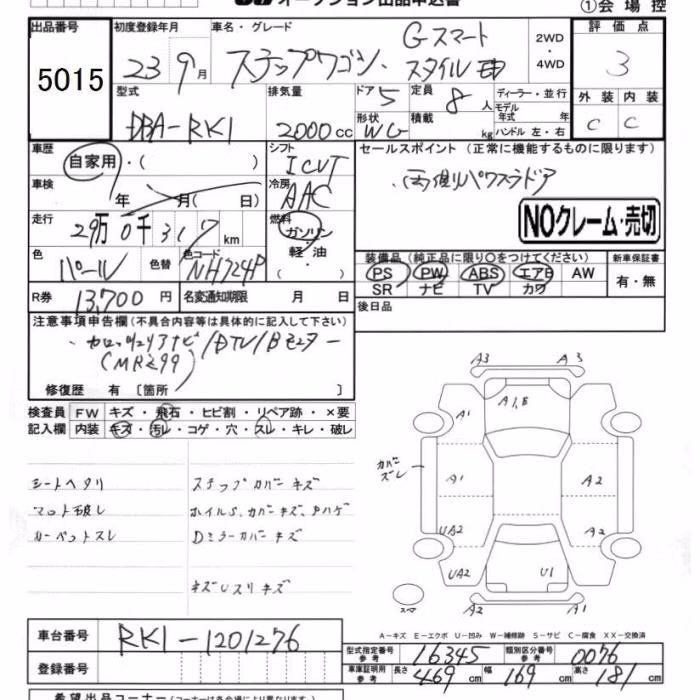 オークション出品申込書 ①会場控
出品番号 初度登録年月 車名・グレード 評価点
5015 23年9月 ステップワゴン・Gスマートスタイル 2WD・4WD 3
型式 排気量 ドア 5 定員 8人 ディーラー・並行 外装 内装
DBA-RK1 2000cc 形状 WG 積載 kg モデル年式 年 ハンドル 左・右 C C
車歴 シフト セールスポイント (正常に機能するものに限ります)
自家用・( ) ICVT 両側パワスラドア
車検 年 月( 日) 冷房 AAC
NOクレーム・売切
走行 29万0千317km 燃料 ガソリン・軽油・( )
装備品(純正品に限り○をつけてください) 新車保証書
色 パール 色替 色コード NH724P PS PW ABS エアB AW 有・無
SR ナビ TV カワ
R券 13,700円 名変通知期限 月 日 後日品
注意事項申告欄(不具合内容等は具体的に記入して下さい)
・カロッツェリアナビ/DTV/Bモニター
(MRZ99)
修復歴 有 〔箇所 〕
検査員 FW キズ・飛石・ヒビ割・リペア跡・×要
記入欄 内装 キズ・汚レ・コゲ・穴・スレ・キレ・破レ
シートヘタリ ステップカバーキズ
マット破レ ホイルS、カバーキズ、タハゲ
カーペットスレ Dミラーカバーキズ
キズUスリキズ
A3 A3
A1,E
A1
カバーズレ
A1 A2
UA2 A2
UA2 U1
スマ A2 A1
A-キズ E-エクボ U-凹み W-補修跡 S-サビ C-腐食 XX-交換済
車台番号 RK1-1201276
型式指定番号 参考 16345 類別区分番号 参考 0076
登録番号 車庫証明用 参考 長さ 469cm 幅 169cm 高さ 181cm
希望出品コーナー(コーナーは各会場により異なります)